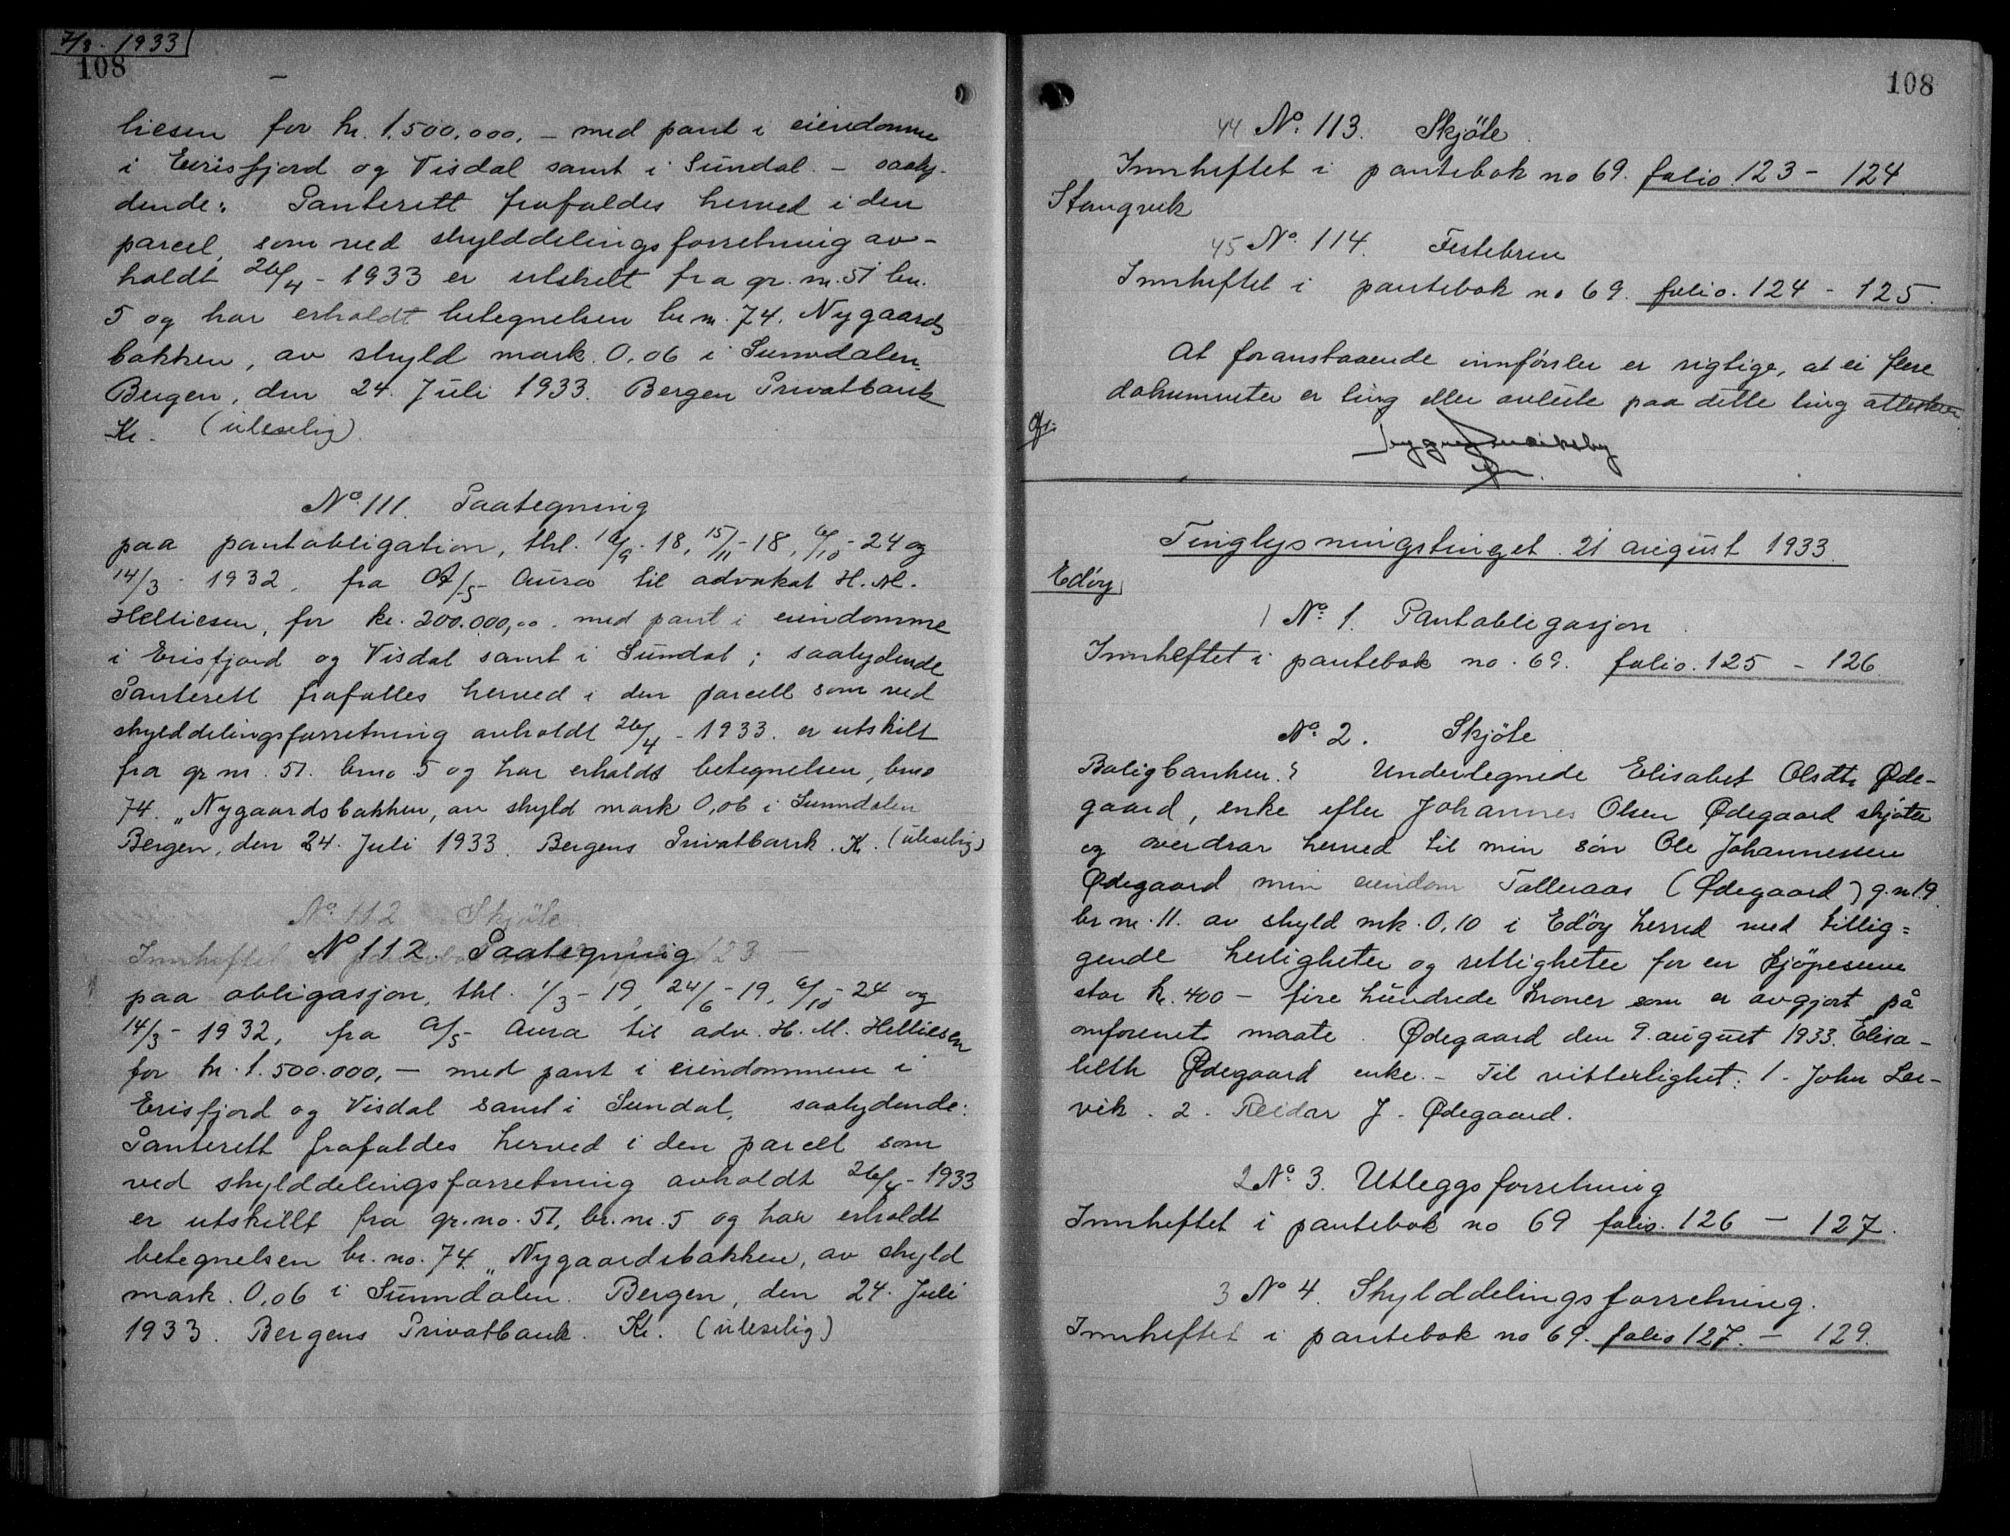 7/8 - 1933
108
liesen for kr. 1.500.000, - med pant i eiendomme
i Eirisfjord og Visdal samt i Sundal - saaly-
dende: Panterett frafaldes herved i den
parcel, som ved skylddelingsforretning av-
holdt 26/4 - 1933 er utskilt fra gr. nr. 51 bn.
5 og har erholdt betegnelsen br. nr. 74. Nygaards
bakken, av skyld mark. 0,06 i Sunndalen.
Bergen, den 24. Juli 1933. Bergen Privatbank
Kr. (uleselig).
No. 111. Paategning
paa pantobligation, thl. 18, 15/11 - 18, 6/10 - 24 og
14/3 - 1932, fra A/S Aura til advokat H. M.
Helliesen, for kr. 200.000,00. med pant i eiendomme
i Erisfjord og Visdal samt i Sundal; saalydende
Panterett frafalles herved i den parcell som ved
skylddelingsforretning avholdt 26/4 - 1933. er utskilt
fra gr nr. 51. bno 5 og har erholdt betegnelsen, bno
74. „Nygaardsbakken, av skyld mark 0,06 i Sunndalen
Bergen, den 24. Juli 1933. Bergens Privatbank. Kr. (uleselig)
No. 112 Skjøte
Innheftet 123 -
No 112. Paategning
paa obligasjon, thl. 1/3 - 19, 24/6 - 19, 6/10 - 24 og
14/3 - 1932, fra A/S Aura til adv. H. M. Helliesen
for kr. 1.500.000, - med pant i eiendommene i
Erisfjord og Visdal samt i Sundal, saalydende:
Panterett frafaldes herved i den parcell som
ved skylddelingsforretning avholdt 26/4 - 1933
er utskillt fra gr. no. 51, br. nr. 5 og har erholdt
betegnelsen br. no. 74. „Nygaardsbakken, av skyld
mark. 0,06 i Sunndalen. Bergen, den 24. Juli
1933. Bergens Privatbank. Kr. (uleselig)
108
44 No. 113. Skjöte.
Innheftet i pantebok no 69. folio 123 - 124.
Stangvik
45 No. 114. Festebrev
Innheftet i pantebok no 69. folio. 124 - 125.
At foranstaaende innførsler er rigtige, at ei flere
dokumenter er ting eller avleste paa dette ting attesteres
Tinglysningstinget. 21 august 1933.
Edøy
1 No. 1. Pantobligasjon.
Innheftet i pantebok no. 69. folio. 125 - 126.
No 2. Skjöte
Boligbanken. Undertegnede Elisabet Olsdtr Øde-
gaard, enke efter Johannes Olsen Ødegaard skjøter
og overdrar herved til min sön Ole Johannessen
Ødegaard min eiendom Talleraas (Ødegaard) g.nr. 19.
br nr. 11. av skyld mk. 0,10 i Edöy herred med tillig=
gende herligheter og rettigheter for en kjöpesum
stor kr. 400 - fire hundrede kroner som er avgjort på
omforenet maate. Ødegaard den 9. august 1933. Elisa-
beth Ødegaard enke. - Til vitterlighet: 1. John Ler-
vik. 2. Reidar J. Ødegaard.
2 No. 3. Utleggsforretning
Innheftet i pantebok no 69 folio. 126 - 127.
3 No 4. Skylddelingsforretning.
Innheftet i pantebok no 69. folio 127. - 129.